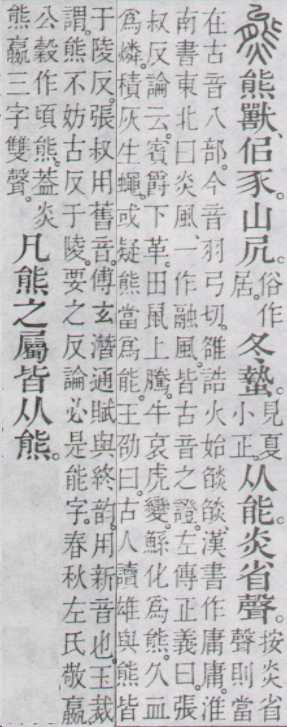 熊獸。佀豕。山凥。俗作
居。
冬蟄。見夏
小正。
从能。炎省聲。按炎省
聲則當
在古音八部。今音羽弓切。雒誥火始燄燄。漢書作庸庸。淮
南書東北曰炎風。一作融風。皆古音之證。左傳正義曰。張
叔反論云。賓爵下革。田鼠上騰。牛哀虎變。鯀化爲熊。久血
爲燐。積灰生蠅。或疑熊當爲能。王劭曰。古人讀雄與熊皆
于陵反。張叔用舊音。傅玄潛通賦與終韵。用新音也。玉裁
謂。熊不妨古反于陵。要之反論必是能字。春秋左氏敬嬴。
公穀作頃熊。葢炎
熊嬴三字雙聲。
凡熊之屬皆从熊。